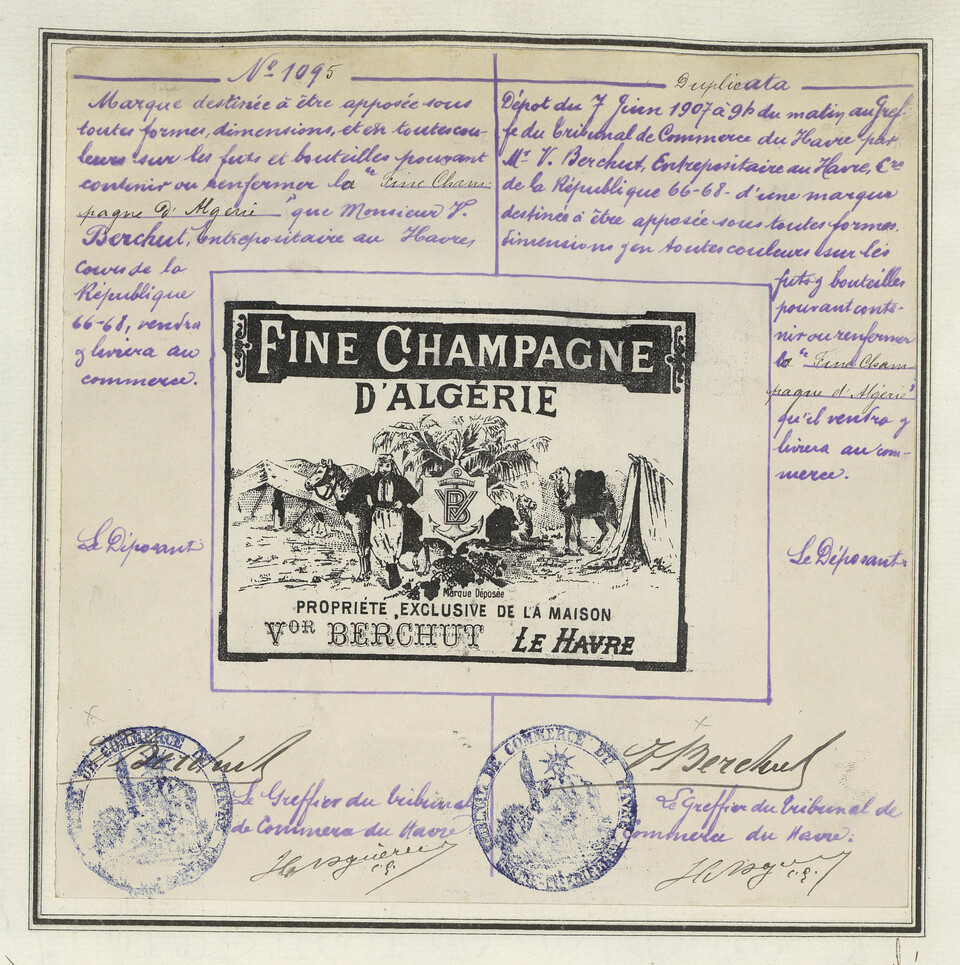 Nº 1095
Marque destinée à être apposée sous
toutes formes, dimensions, et en toutes cou-
leurs sur les futs et bouteilles pouvant
contenir ou renfermer la "Fine Cham
pagne d'Algérie" que Monsieur V.
Berchut, entrepositaire au Havres
Cours de la
République
66-68, vendra
& livrera au
commerce.
Le Déposant
Duplicata
Dépot du 7 Juin 1907 à 9h du matin au Gref-
fe du Tribunal de Commerce du Havre par
Mr V. Berchut, Entrepositaire au Havre, Crs
de la République 66-68- d'une marque
destinée à être apposée sous toutes formes,
dimensions & en toutes couleurs sur les
futs & bouteilles
pouvant conte-
nir ou renfermer
la "Fine Cham
pagne d'Algérie"
qu'il vendra &
livrera au com-
merce.
Le Déposant
FINE CHAMPAGNE
D'ALGÉRIE
VB
Marque Déposée
PROPRIÉTE EXCLUSIVE DE LA MAISON
VOR BERCHUT LE HAVRE
V. Berchut
Le Greffier du tribunal
de Commerce du Havre
V. Berchut
Le Greffier du Tribunal de
Commerce du Havre:
COMMERCE DU HAVRE